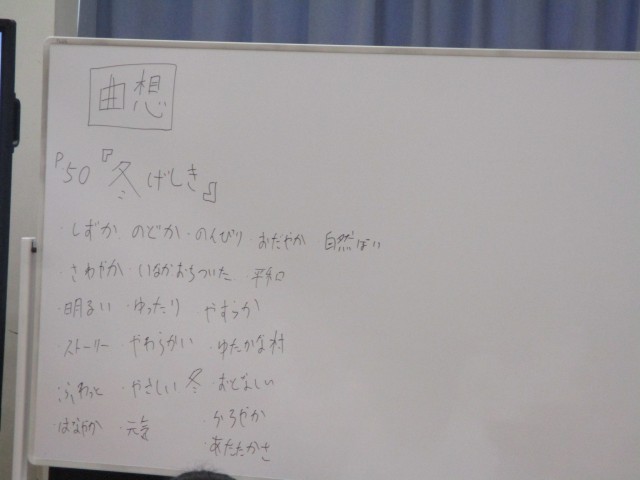 曲想
P50『冬げしき』
・しずか のどか ・のんびり おだやか 自然ぽい
・さわやか ・いなか おちついた ・平和
・明るい ・ゆったり やすらか
ストーリー ・やわらかい ・ゆたかな村
ふわっと ・やさしい 冬 ・おとなしい
・はなやか ・元気 ・かろやか
・あたたかさ